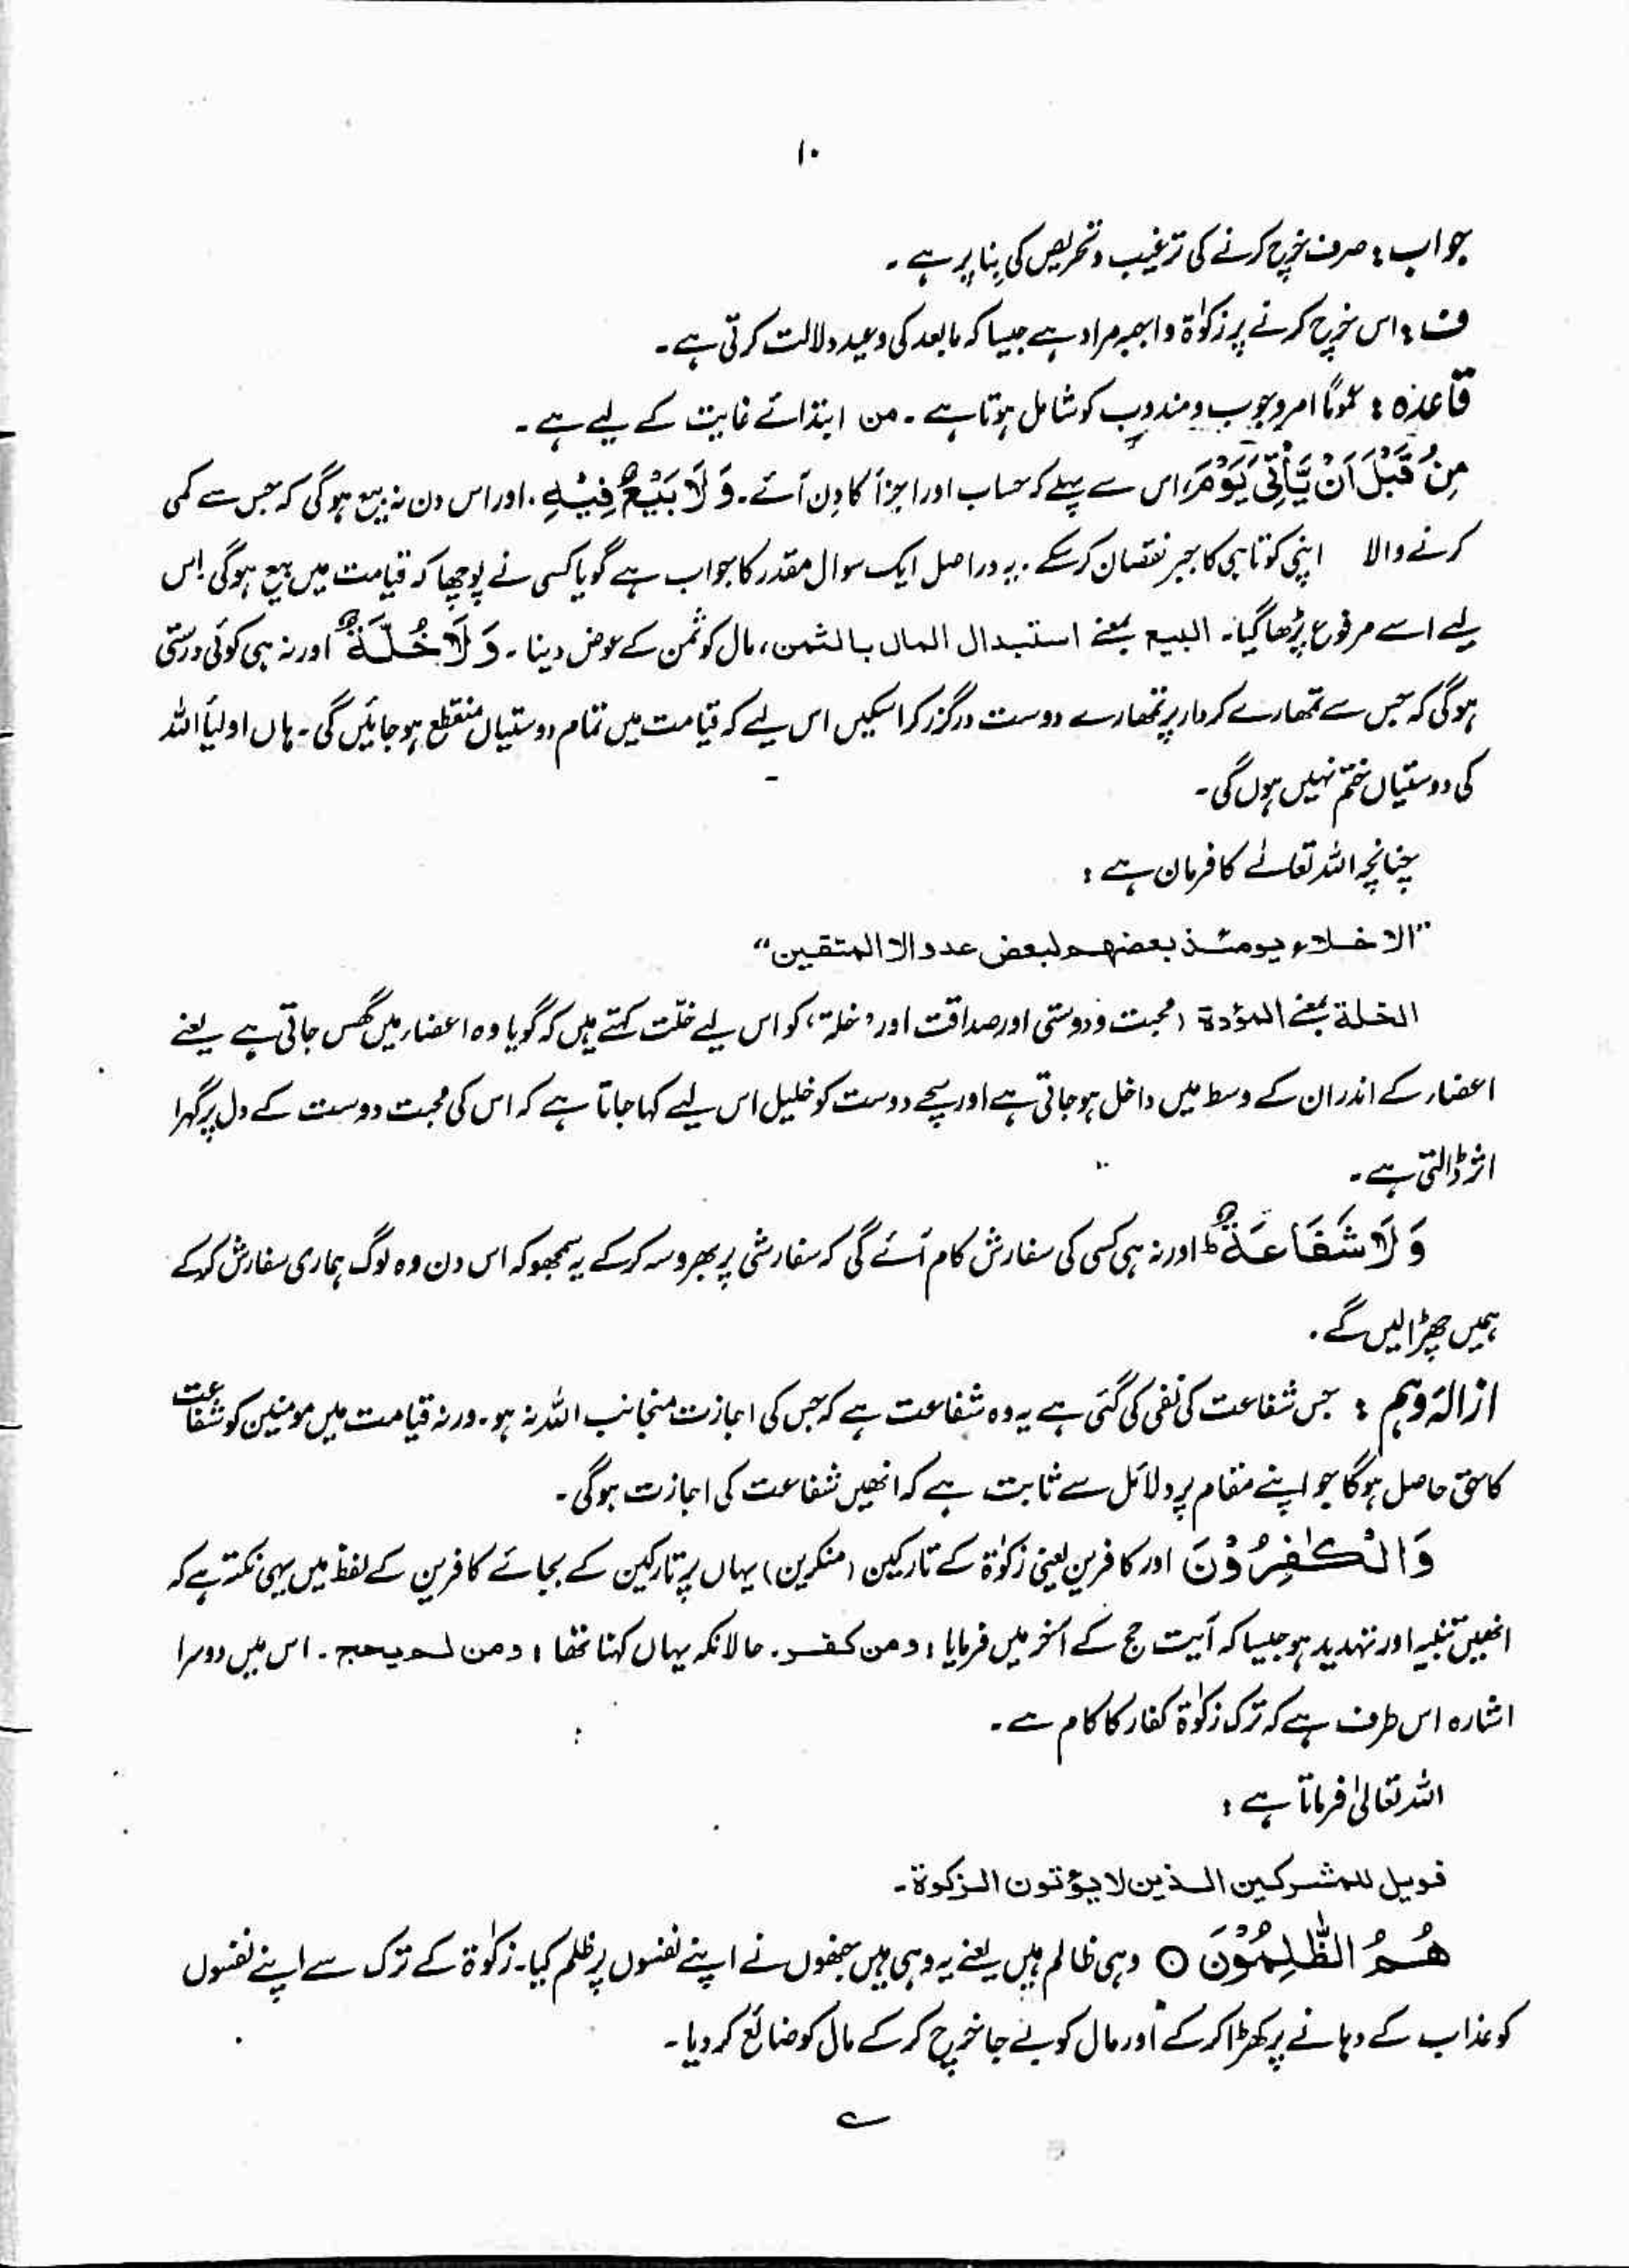 ۱۰
جواب : صرف خرچ کرنے کی ترغیب و تحریص کی بنا پر ہے ۔
ف : اس خرچ کرنے پر زکوٰۃ واجبہ مراد ہے جیسا کہ مابعد کی وعید دلالت کرتی ہے ۔
قاعدہ : عموماً امر وجوب و مندوب کو شامل ہوتا ہے ۔ من ابتدائے غایت کے لیے ہے ۔
مِنْ قَبْلِ اَنْ یَّاْتِیَ یَوْمٌ ، اس سے پہلے کہ حساب اور اجزأ کا دِن آئے ۔ وَ لَا بَیْعٌ فِیْہِ ، اور اس دن نہ بیع ہوگی کہ جس سے کمی
کرنے والا اپنی کوتاہی کا جبر نقصان کر سکے ۔ یہ دراصل ایک سوال مقدر کا جواب ہے گویا کسی نے پوچھا کہ قیامت میں بیع ہوگی اس
لیے اسے مرفوع پڑھا گیا ۔ البیع بمعنے استبدال المال بالثمن ، مال کو ثمن کے عوض دینا ۔ وَ لَا خُلَّۃٌ اور نہ ہی کوئی دوستی
ہوگی کہ جس سے تمھارے کردار پر تمھارے دوست درگزر کرا سکیں اس لیے کہ قیامت میں تمام دوستیاں منقطع ہو جائیں گی ۔ ہاں اولیأ اللہ
کی دوستیاں ختم نہیں ہوں گی ۔
چنانچہ اللہ تعالےٰ کا فرمان ہے :
”الاخلاء یومئذ بعضھم لبعض عدو الا المتقین“
الخلة بمعنے المؤدة (محبت و دوستی اور صداقت اور ’خلۃ‘ کو اس لیے خلّت کہتے ہیں کہ گویا وہ اعضاء میں گھس جاتی ہے یعنے
اعضاء کے اندر ان کے وسط میں داخل ہو جاتی ہے اور سچے دوست کو خلیل اس لیے کہا جاتا ہے کہ اس کی محبت دوست کے دل پر گہرا
اثر ڈالتی ہے ۔
وَ لَا شَفَاعَۃٌ ط اور نہ ہی کسی کی سفارش کام آئے گی کہ سفارشی پر بھروسہ کر کے یہ سمجھو کہ اس دن وہ لوگ ہماری سفارش کر کے
ہمیں چھڑا لیں گے ۔
ازالۂ وہم : جس شفاعت کی نفی کی گئی ہے یہ وہ شفاعت ہے کہ جس کی اجازت منجانب اللہ نہ ہو ۔ ورنہ قیامت میں مومنین کو شفاعت
کا حق حاصل ہوگا جو اپنے مقام پر دلائل سے ثابت ہے کہ انھیں شفاعت کی اجازت ہوگی ۔
وَالْکٰفِرُوْنَ اور کافرین یعنی زکوٰۃ کے تارکین (منکرین) یہاں پر تارکین کے بجائے کافرین کے لفظ میں یہی نکتہ ہے کہ
انھیں تنبیہ اور تہدید ہو جیسا کہ آیت حج کے آخر میں فرمایا : ومن کفر ۔ حالانکہ یہاں کہنا تھا : ومن لم یحج ۔ اس میں دوسرا
اشارہ اس طرف ہے کہ ترک زکوٰۃ کفار کا کام ہے ۔
اللہ تعالیٰ فرماتا ہے :
فویل للمشرکین الذین لا یؤتون الزکوة ۔
ھُمُ الظّٰلِمُوْنَ ○ وہی ظالم ہیں یعنے یہ وہی ہیں جنھوں نے اپنے نفسوں پر ظلم کیا ۔ زکوٰۃ کے ترک سے اپنے نفسوں
کو عذاب کے دہانے پر کھڑا کر کے اور مال کو بے جا خرچ کر کے مال کو ضائع کر دیا ۔